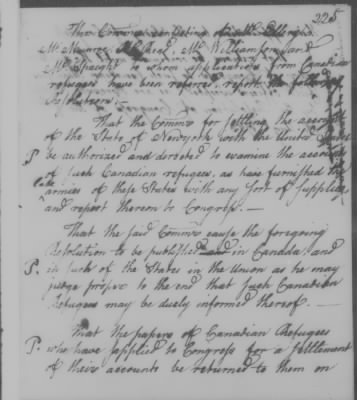 225
The Committee consisting of Mr. Ellery,
Mr. Monroe, Mr. Read, Mr. Williamson, and
Mr. Spaight to whom applications from Canadian
refugees have been referred, report the following
Resolution.
That the Commr. for settling the accounts
of the State of Newyork with the United States
P be authorized and directed to examine the accounts
of such Canadian refugees, as have furnished the
late
armies of these States with any sort of supplies
and report thereon to Congress. —
That the said Commr. cause the foregoing
Resolution to be published in Canada and
P. in such of the States in the Union as he may
judge proper to the end that such Canadian
Refugees may be duely informed thereof. —
That the papers of Canadian Refugees
P. who have applied to Congress for a settlement
of theirs accounts be returned to them on